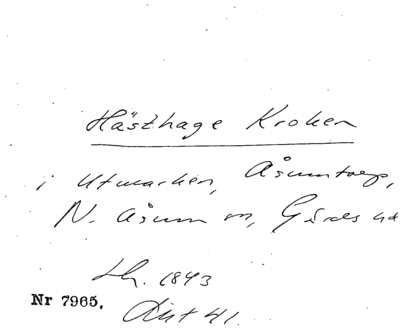 Hästhage Kroken
i Utmarken, Åsumtorp,
N. Åsum sn, Gärds hd
Lh. 1843
Nr 7965.
Akt 41